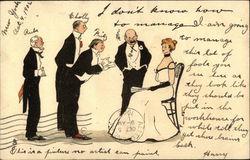 New York
Oct. 4, 190
Rube
Cholly
I don't know how
to manage. I am going
to manage
this lot of
fools you
see here as
they look like
they should be
put in the
workhouse for
while till they
get their brains
back.
This is a picture no artist can paint
Harry